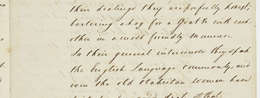 their dealings they carefully
bartering a hog for a Goat &c with each
other in a most friendly manner.
In their general intercourse they speak
the English Language commonly, and
even the old Otaheitan women have